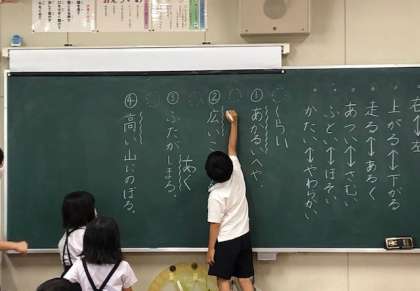 右↔左
上がる↔下がる
走る↔あるく
あつい↔さむい
ふとい↔ほそい
かたい↔やわらかい
くらい
①あかるいへや。
②広い
あく
③ふたがしまる。
④高い山にのぼる。